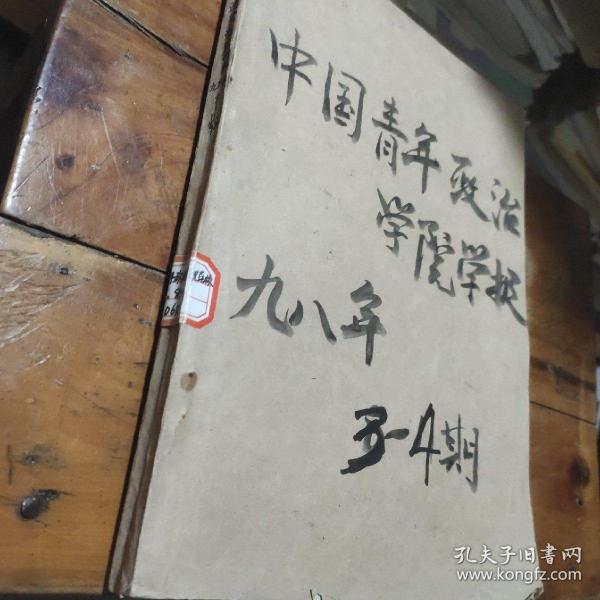 中国青年政治
学院学报
九八年
3-4期
孔夫子旧书网
www.kongfz.com